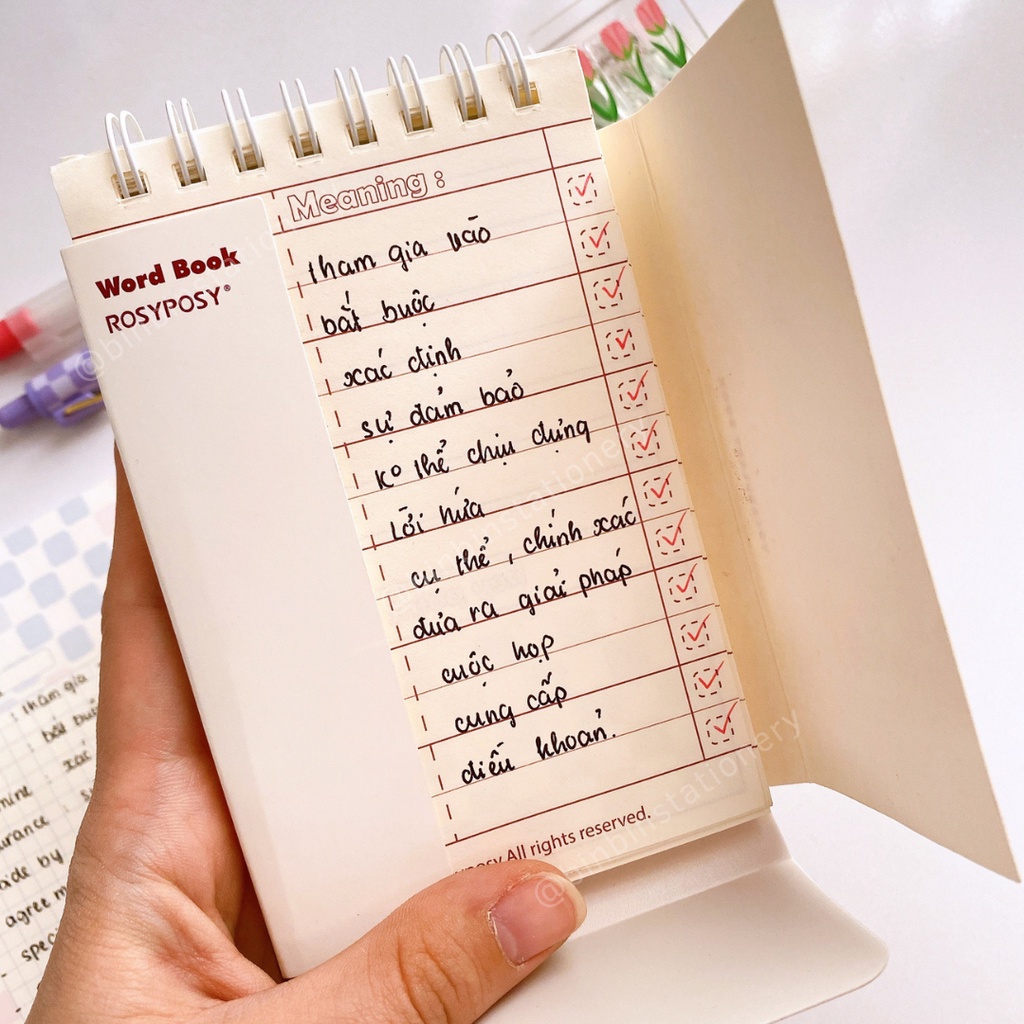 Meaning :
Word Book
ROSYPOSY®
tham gia vào
bắt buộc
xác định
sự đảm bảo
Ko thể chịu đựng
Lời hứa
cụ thể , chính xác
đưa ra giải pháp
cuộc họp
cung cấp
điều khoản.
All rights reserved.
: tham gia
bắt
xác
urance
ade by
agree
spec
@binbinstationery